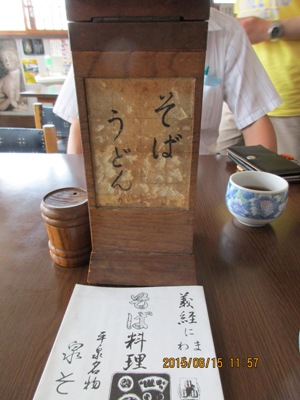 そば
うどん
義経にま
わ
そば料理
平泉名物
泉そ
2015/08/15 11:57